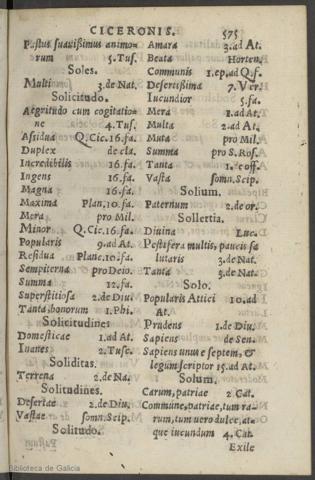 CICERONIS. 575
Pastus suauissimus animo-
rum 5. Tus.
Soles.
Multi 3. de Nat.
Solicitudo.
Aegritudo cum cogitatio-
ne 4. Tus.
Assidua Q. Cic. 16. fa.
Duplex de cla.
Incredibilis 16. fa.
Ingens 16. fa.
Magna 16. fa.
Maxima Plan. 10. fa.
Mera pro Mil.
Minor Q. Cic. 16. fa.
Popularis 9. ad At.
Residua Planc. 10. fa.
Sempiterna pro Deio.
Summa 12. fa.
Superstitiosa 2. de Diu.
Tanta, bonorum 1. Phi.
Solicitudines
Domesticae 1. ad At.
Inanes 2. Tusc.
Soliditas.
Terrena 2. de Na.
Solitudines.
Desertae 2. de Diu.
Vastae somn. Scip.
Solitudo.
Amara 3. ad At.
Beata Horten.
Communis 1. ep. ad Q. f.
Desertissima 7. Ver.
Iucundior 5. fa.
Mera 1. ad At.
Multa 2. ad At.
Muta pro Mil.
Summa pro S. Ros.
Tanta 1. de off.
Vasta somn. Scip.
Solium.
Paternum 2. de or.
Sollertia.
Diuina Luc.
Pestifera multis, paucis sa
lutaris 3. de Nat.
Tanta 3. de Nat.
Solo.
Popularis Attici 10. ad
At.
Prudens 1. de Diu.
Sapiens de Sen.
Sapiens unus e septem, &
legum scriptor 15. ad At.
Solum.
Carum, patriae 2. Cat.
Commune, patriae, tum ca-
rum, tum uero dulce, at-
que iucundum 4. Cat.
Exile
Biblioteca de Galicia